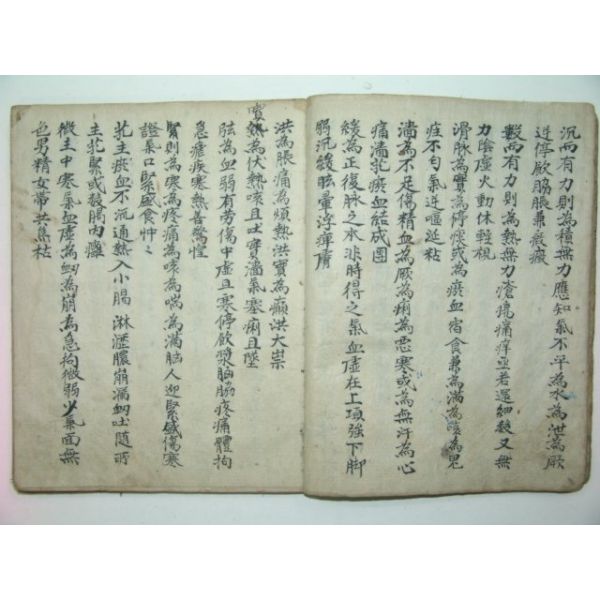 沉而有力則為積無力應知氣不平為水為泄為厥
逆停飲脇脹兼癥瘕
數而有力則為熱無力瘡瘍痛痒至若還細數又無
力陰虛火動体輕視
滑脉為實為停痰或為瘀血宿食兼為滿為為鬼
疰不匀氣逆嘔延粘
濇為不足傷精血為厥為痢為惡寒或為無汗為心
痛濇芤瘀血結成團
緩為正復脉之本非時得之氣血虛在上項強下脚
弱沉緩眩暈浮痺膚
洪為脹痛為煩熱洪實為癲洪大祟
實熱為伏熱咳且吐實濇氣塞痢且墜
弦為血弱有勞傷中虛且寒停飲漿胸脇疼痛體拘
急瘧疾寒熱善驚惶
緊則為寒為疼痛為咳為喘為滿胸人迎緊盛傷寒
證氣口緊盛食忡〻
芤主瘀血不流通熱入小腸淋瀝膿崩漏衂吐隨所
主芤緊或發腸內癰
微主中寒氣血虛為衂為崩為急拘微弱少氣面無
色男精女帶共焦枯